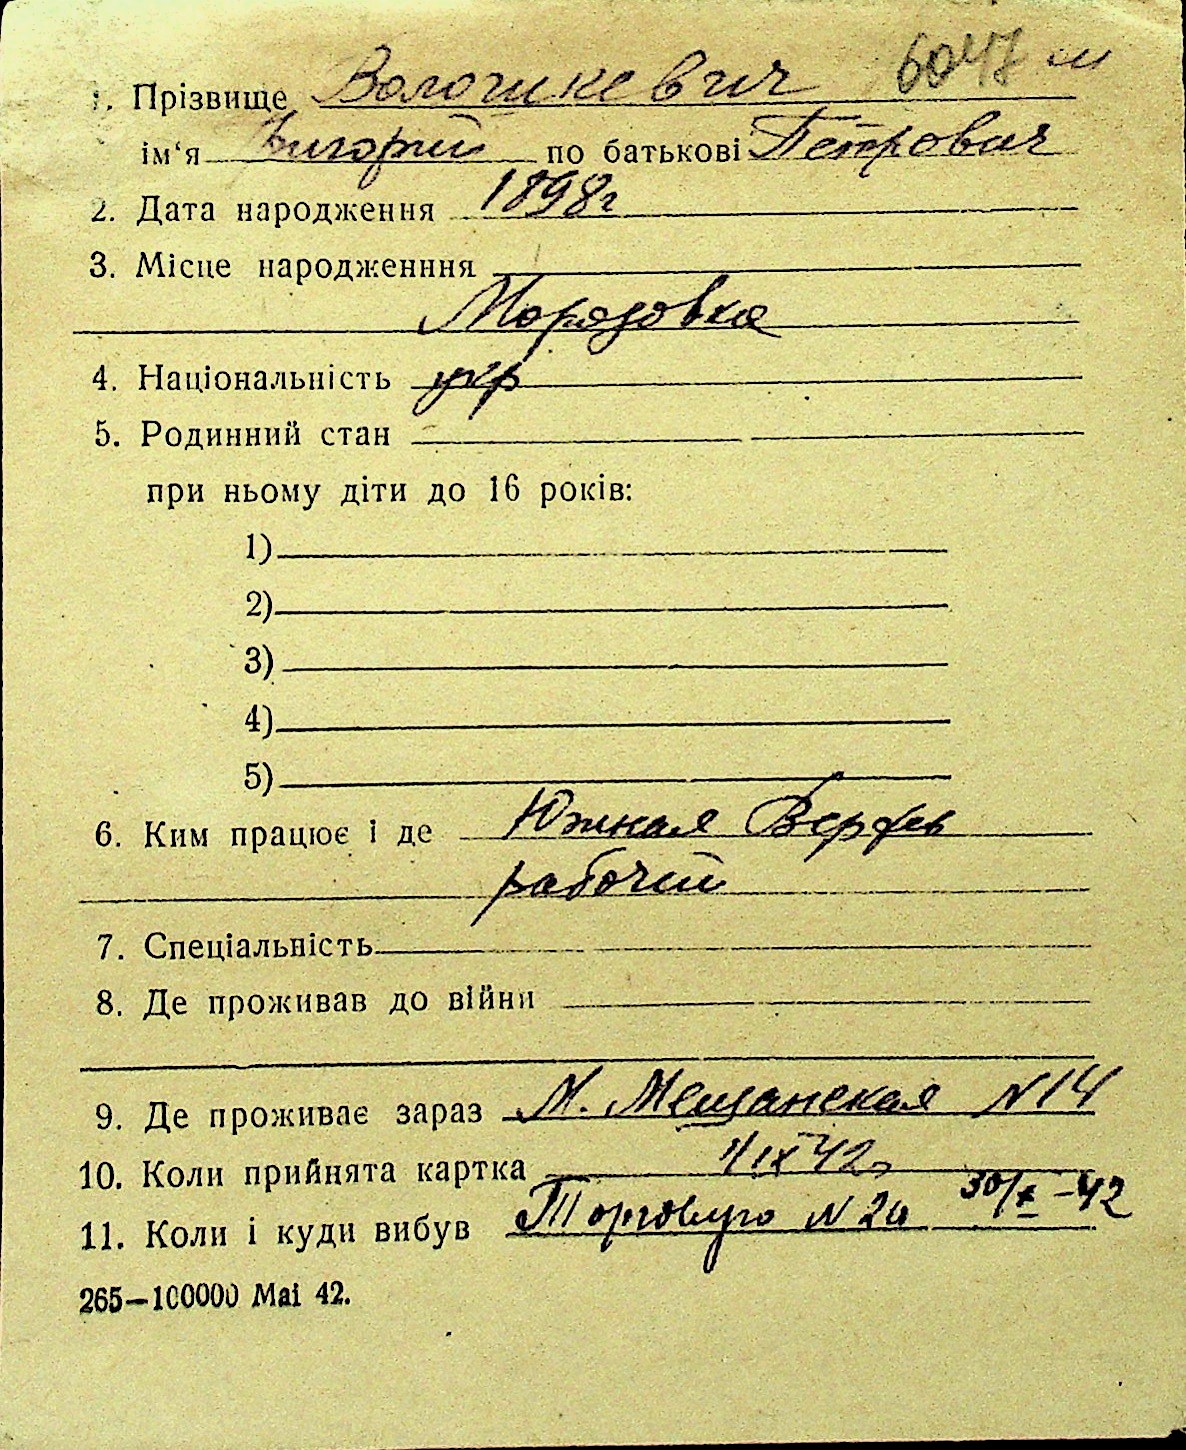 6047 м
1. Прізвище Волошкевич
ім‘я Григорий по батькові Петрович
2. Дата народження 1898г
3. Місце народженння
Морозовка
4. Національність укр
5. Родинний стан
при ньому діти до 16 років:
1)
2)
3)
4)
5)
6. Ким працює і де Южная Верфь
рабочий
7. Спеціальність
8. Де проживав до війни
9. Де проживає зараз М. Мещанская N 14
10. Коли прийнята картка 1/IX 42
11. Коли і куди вибув Торговую N 2а 30/X-42
265—100000 Маі 42.